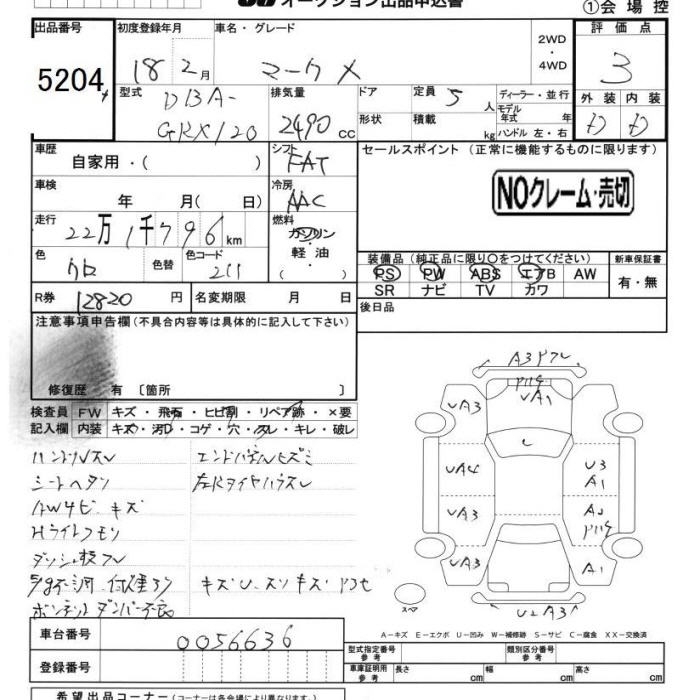 オークション出品申込書
①会場控
出品番号
初度登録年月
車名・グレード
評価点
5204
18 2月
マークX
2WD
・
4WD
3
型式
DBA-
GRX120
排気量
2490 cc
ドア
定員 5 人
ディーラー・並行
モデル
年式 年
形状
積載 kg
ハンドル 左・右
外装
内装
D
D
車歴
自家用・( )
シフト
FAT
セールスポイント (正常に機能するものに限ります)
NOクレーム・売切
車検
年 月( 日)
冷房
AAC
走行
22万1千796km
燃料
ガソリン
・
軽油
( )
色
クロ
色替
色コード
211
装備品(純正品に限り〇をつけてください)
PS PW ABS エアB AW
SR ナビ TV カワ
新車保証書
有・無
R券
12820 円
名変期限 月 日
後日品
注意事項申告欄(不具合内容等は具体的に記入して下さい)
修復歴 有 〔箇所 〕
検査員
記入欄
FW キズ・飛石・ヒビ割・リペア跡・×要
内装 キズ・汚れ・コゲ・穴・スレ・キレ・破レ
ハンドルスレ
シートヘタリ
AW4ヒ. キズ
Hライトクモリ
UA3
UA1
UA3
UA4
U3
A1
UA3
UA3
A1
U2A3
スペア
A－キズ E－エクボ U－凹み W－補修跡 S－サビ C－腐食 XX－交換済
車台番号
0056636
登録番号
型式指定番号
参考
類別区分番号
参考
車庫証明用
参考
長さ cm
幅 cm
高さ cm
希望出品コーナー(コーナーは各会場により異なります。)